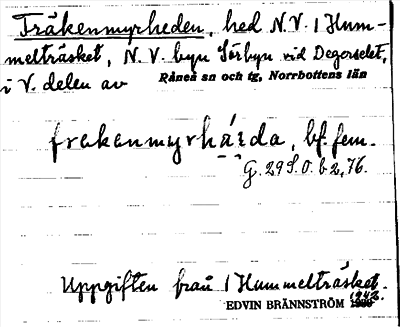 Fräkenmyrheden, hed N.V. / Hum-
melträsket, N.V. byn Sörbyn vid Degerselet,
i V. delen av Råneå sn och tg, Norrbottens län
frakanmyrhä́ɪda, bf. fem.
G. 29 S.O. b 2, 76.
Uppgiften från / Hummelträsket.
EDVIN BRÄNNSTRÖM 1942.